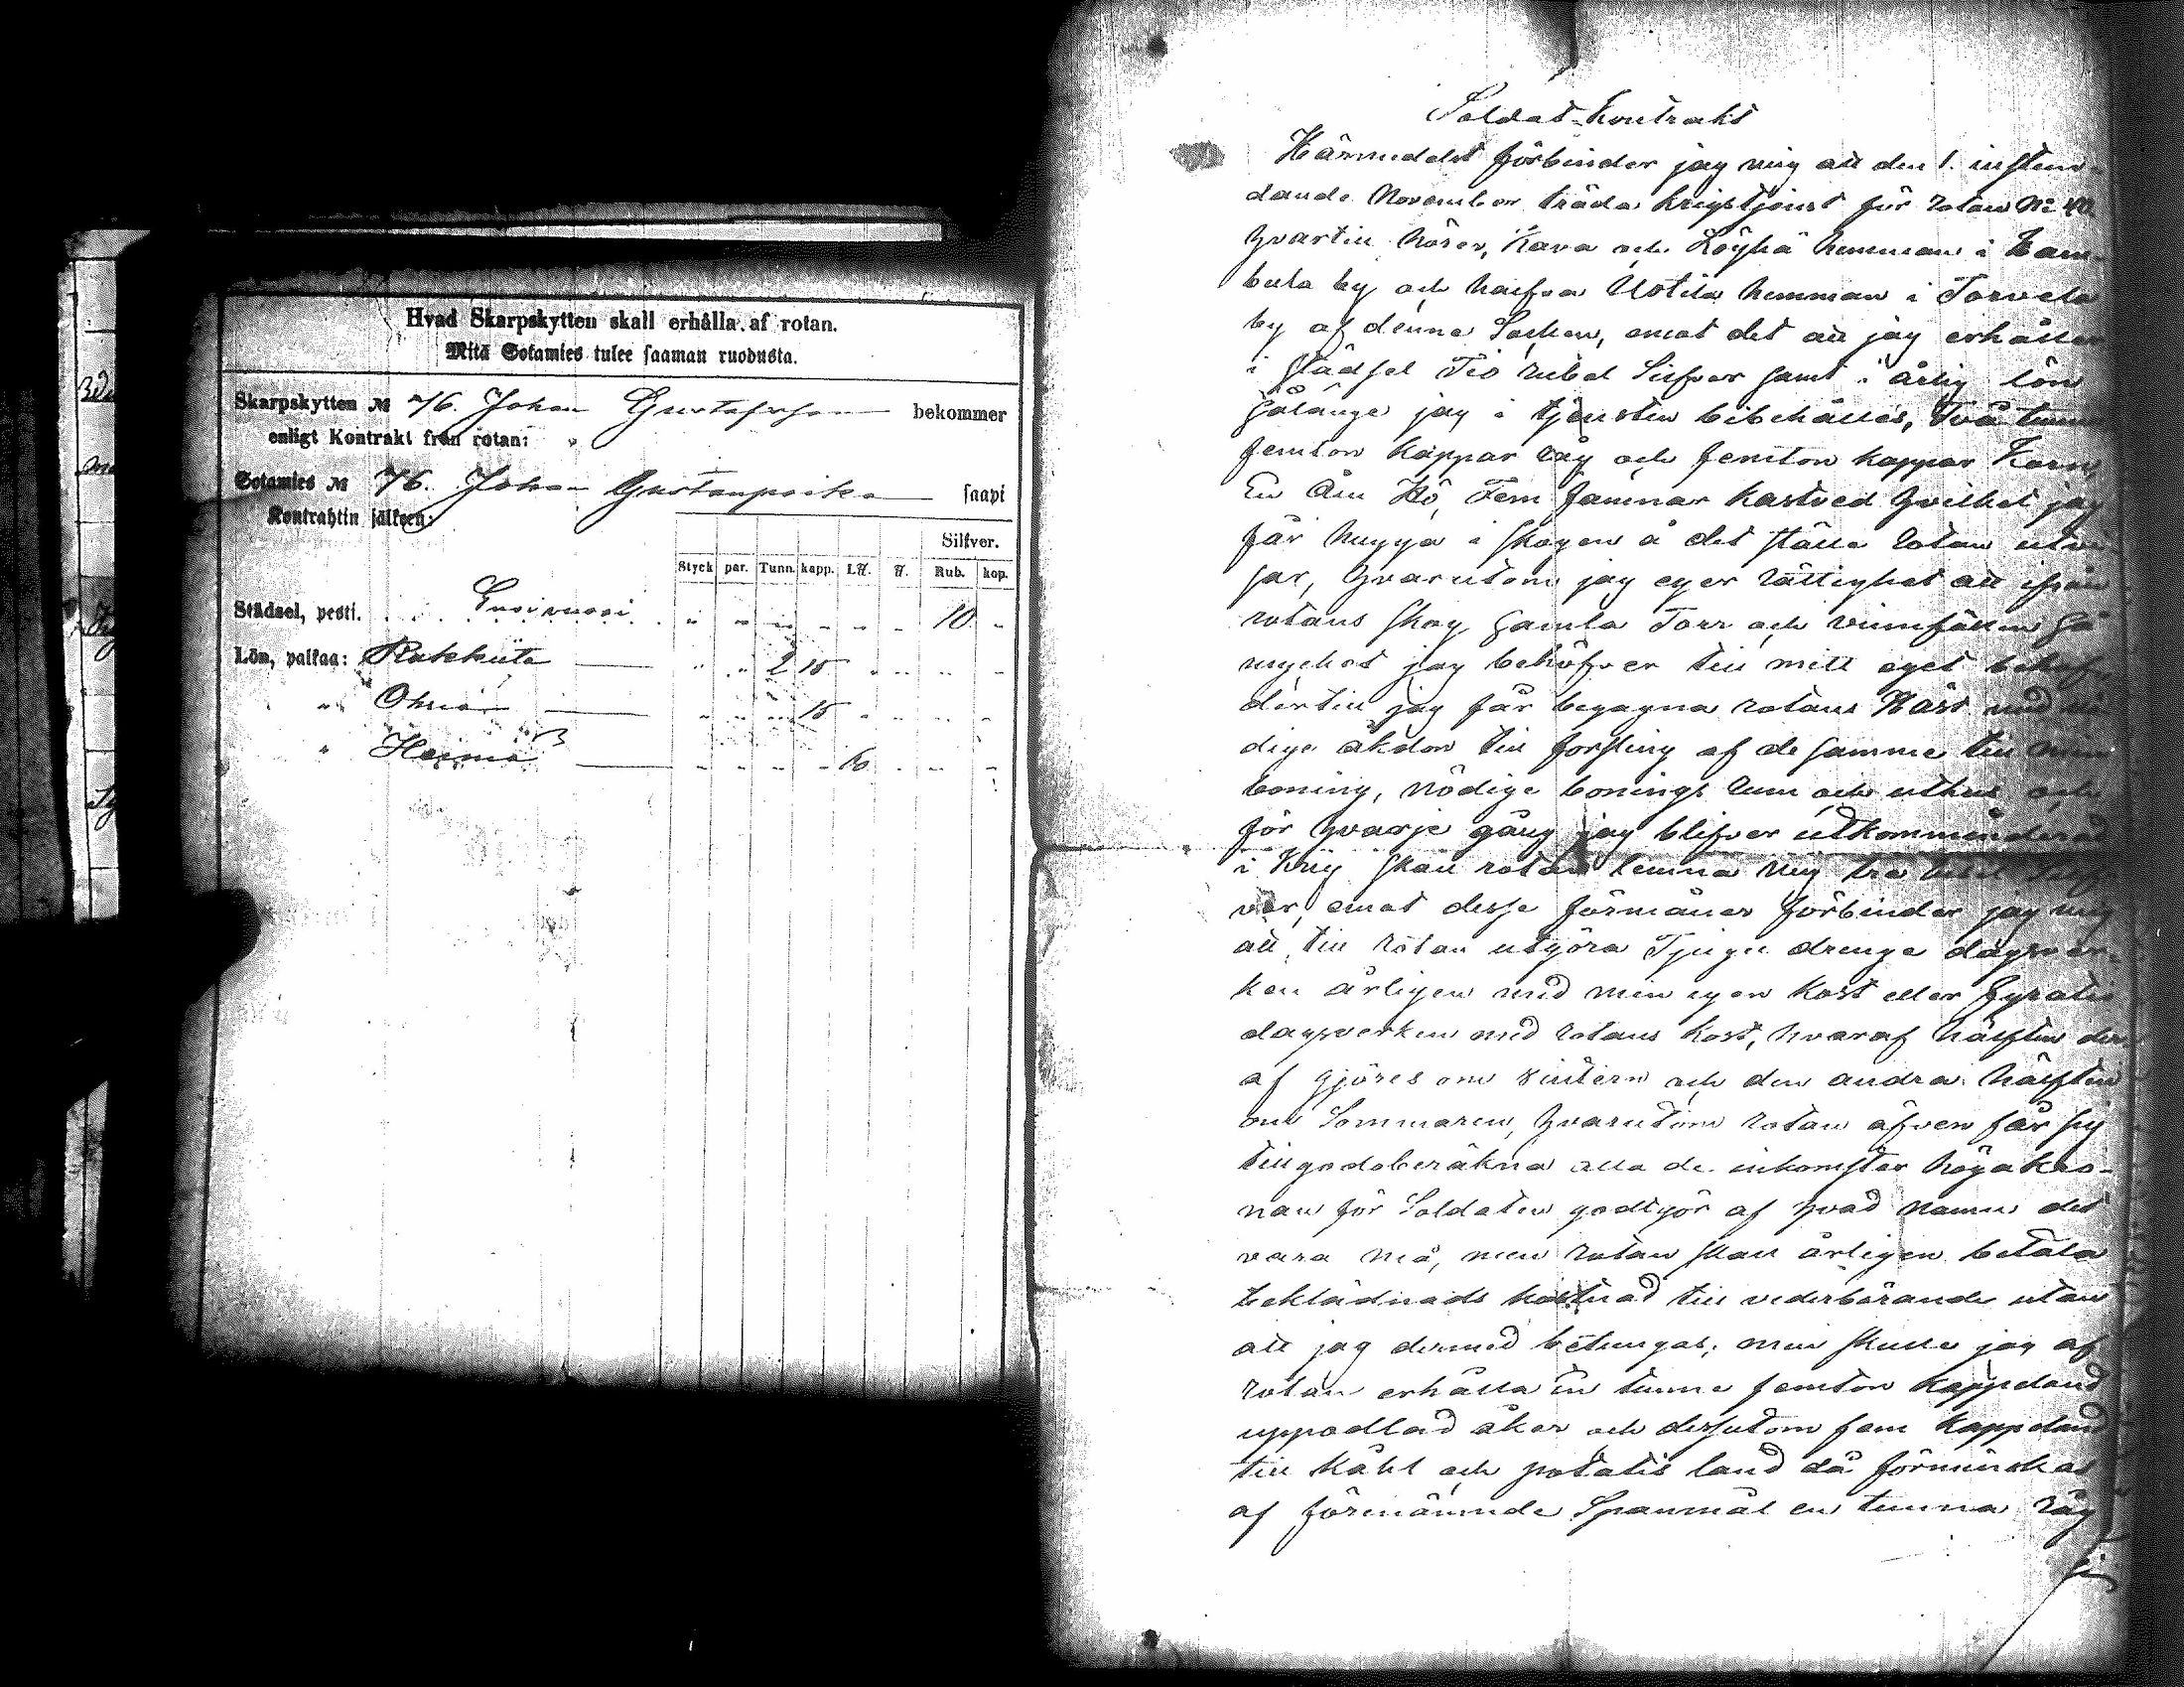 Hvad Skarpskytten skall erhålla af rotan.
Mitä Sotamies tulee saaman ruodusta.
Skarpskytten № 76. Johan Gustafsson bekommer
enligt Kontrakt från rotan:
Sotamies № 76. Johan Gustanpoika saapi
Kontrahtin jälkeen:
Silfver.
Styck par. Tunn. kapp. L℔. ℔. Rub. kop.
Städsel, pesti. 10
Lön, palkaa: 2 15
" Ohria 15
" Heiniä
Soldat-Kontrakt
Härmedelst förbinder jag mig att den 1. insten-
dande November träda Krigstjenst för rotan No
hvartill hörer, Kara och Löyhä hemman i
by och halfva Uotila hemman i Torvela
by af denna Socken, emot det att jag erhåller
i städsel Tio rubel Silfver samt i årlig lön
sålänge jag i tjensten bibehålles, Två tunnor
femton kappar råg och femton kappar Korn,
En Åm Hö, Fem famnar kastved hvilket jag
får hugga i skogen å det ställe rotan utvi-
sar, hvarutom jag eger rättighet att ifrån
rotans skog samla Torr och vindfällen så
mychet jag behöfver till mitt eget behof,
dertill jag får begagna rotans Häst med nö-
dige åkdon till forsling af de samme till min
boning, nödige bonings rum och uthus och
för hvarje gång jag blifver utkommenderad
i Krig skall rotan lemna mig tre rubel Silf-
ver, emot desse förmåner förbinder jag mig
att till rotan utgöra Tjugu drenge dagsver-
ken årligen med min egen Kost eller fyratio
dagsverken med rotans Kost, hvaraf hälften der-
af gjöres om vintern och den andra hälften
om Sommaren, hvarutom rotan äfven får sig
tillgodoberäkna alla de inkomster höga kro-
nan för Soldaten godtgör af hvad namn det
vara må, men rotan skall årligen betala
beklädnads kostnad till vederbörande utan
att jag dermed betungas; men skulle jag af
rotan erhålla En tunne femton kappeland
uppodlad åker och dessutom fem kappeland
till kåhl och potatis land då förminskas
af förmämnde Spanmål en tunna råg